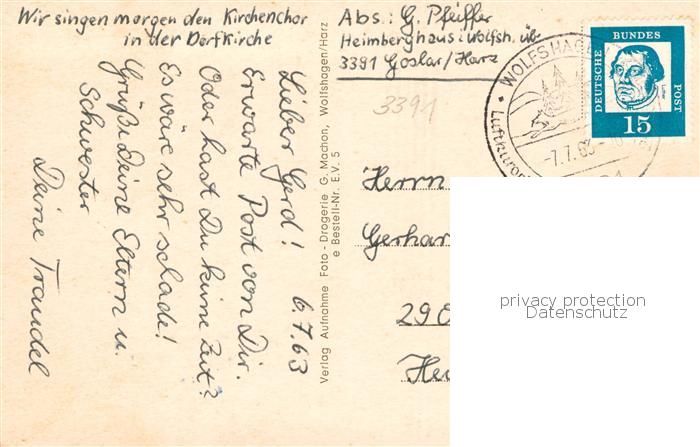 Wir singen morgen den Kirchenchor
in der Dorfkirche
Lieber Gerd! 6.7.63
Erwarte Post von Dir.
Oder hast Du keine Zeit?
Es wäre sehr schade!
Grüße Deine Eltern u.
Schwester
Deine Traudel
Verlag Aufnahme Foto - Drogerie G. Machon, Wolfshagen/Harz
e Bestell-Nr. E.V. 5
Abs.: G. Pfeiffer
Heimberghaus i. Wolfsh. üb.
3391 Goslar/Harz
3391
WOLFSHAG
Luftkuror
-7.7.63-
DEUTSCHE BUNDES POST
15
Herrn
Gerhar
290
He
privacy protection
Datenschutz